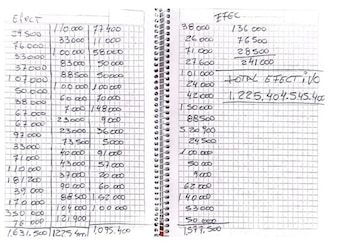 EFECT
29500 110000 77400
76000 33000 11000
53000 100000 58000
37000 83000 50000
107000 88500 50000
50000 100000 100000
38000 60000 70000
67000 7000 148000
67000 23000 9000
97000 23000 36000
33000 73500 5000
71000 40000 91000
110000 43000 57000
181200 37000 20000
39000 90000 60000
170000 88500 162000
330000 104000 100000
76000 121900
1,631.500 1225400 1,095.400
EFEC
38000 136000
26000 76500
71000 28500
27600 241000
101000
24000 TOTAL EFECTIVO
42000 1.225,404.545.400
150000
88500
520900
24500
100000
50000
9000
62000
140000
53000
50000
1,577.500